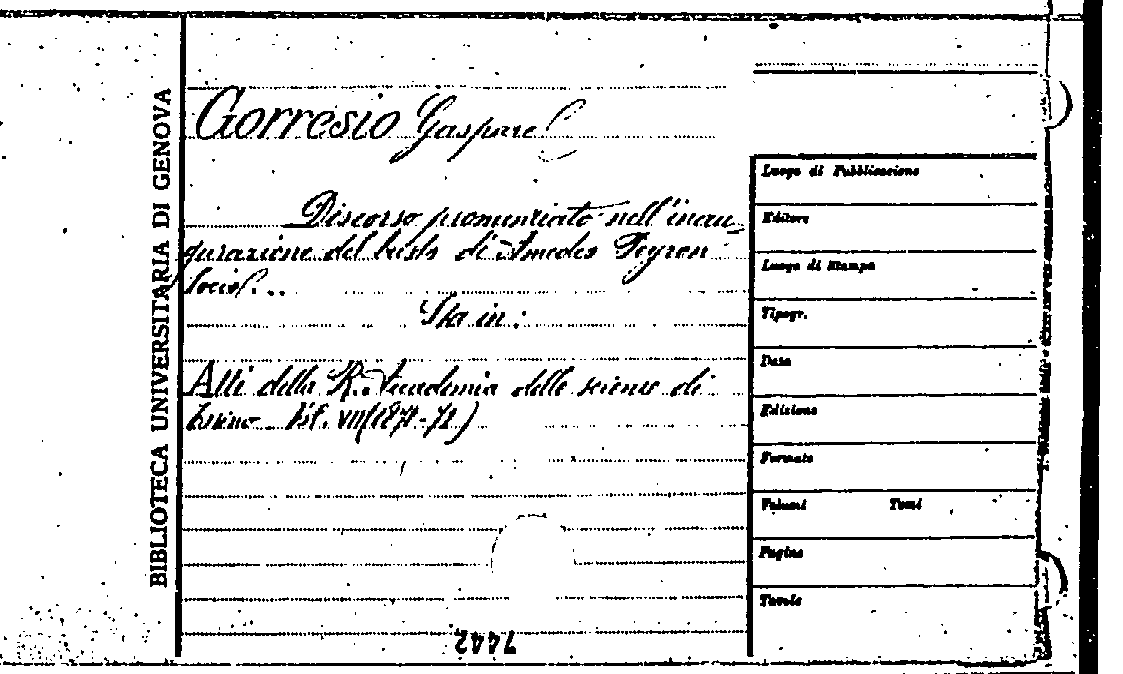 BIBLIOTECA UNIVERSITARIA DI GENOVA
Gorresio Gaspare
Discorso pronunziato nell'inau-
gurazione del busto di Amedeo Peyron
Sta in:
Atti della R. Accademia delle scienze di
Torino. Vol. VII (1871-72)
Luogo di Pubblicazione
Editore
Luogo di Stampa
Tipogr.
Data
Edizione
Formato
Volumi Tomi
Pagine
Tavole
7442